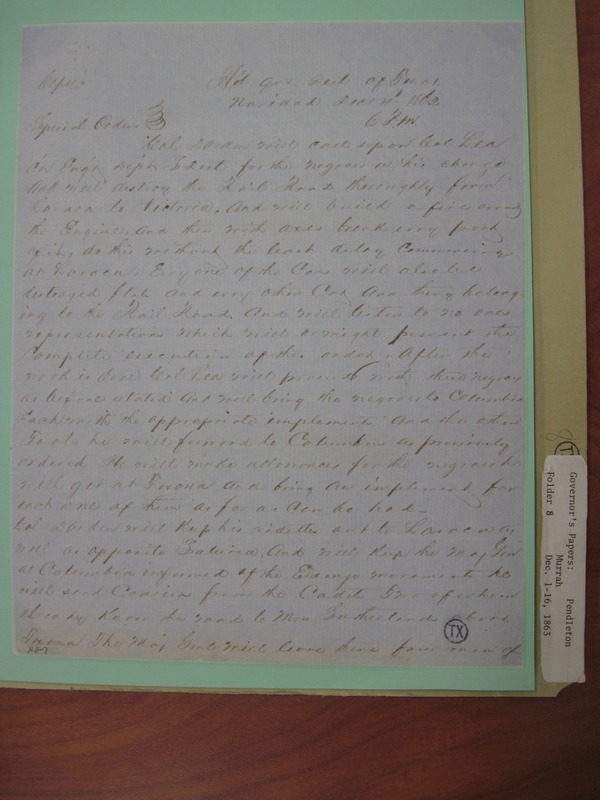 Copy
Hd Qrs Dect of Texas
Navidad Decr 1863
6 P.M.
Special Orders
Col Borden will call upon Col Lea
Ch Eng'r for the negroes in his charge
And will destroy the Rail Road thoroughly from
Lavaca to Victoria, And will build a fire around
the Engine, And then with axes break evry part
of it, do this without the least delay Commencing
at Lavaca. Evry one of the Cars will also be
destroyed And evry other Car And thing belong-
ing to the Rail Road. And will listen to no ones
representations which will or might prevent the
Complete execution of this order. After the
work is done Col Lea will proceed with these negroes
as before stated And will bring the negroes to Columbia
Each with the appropriate implements And the other
Tools he will forward to Columbia as previously
ordered. He will make allowances for the negroes he
will get at Texana And bring an implement for
each one of them as far as Can be had —
Col Borden will Kep his videttes out to Lavaca as
well as opposite And will Kep the Maj Gen
at Columbia informed of the Enemys movements he
will send Couriers from the Cadets two of whom
already Know the road to Mrs Sutherlands above
Texana The Maj Genl will leave here four men of
TX
AB-7
Governor's Papers: Pendleton
Murrah
Folder 8 Dec. 1-16, 1863